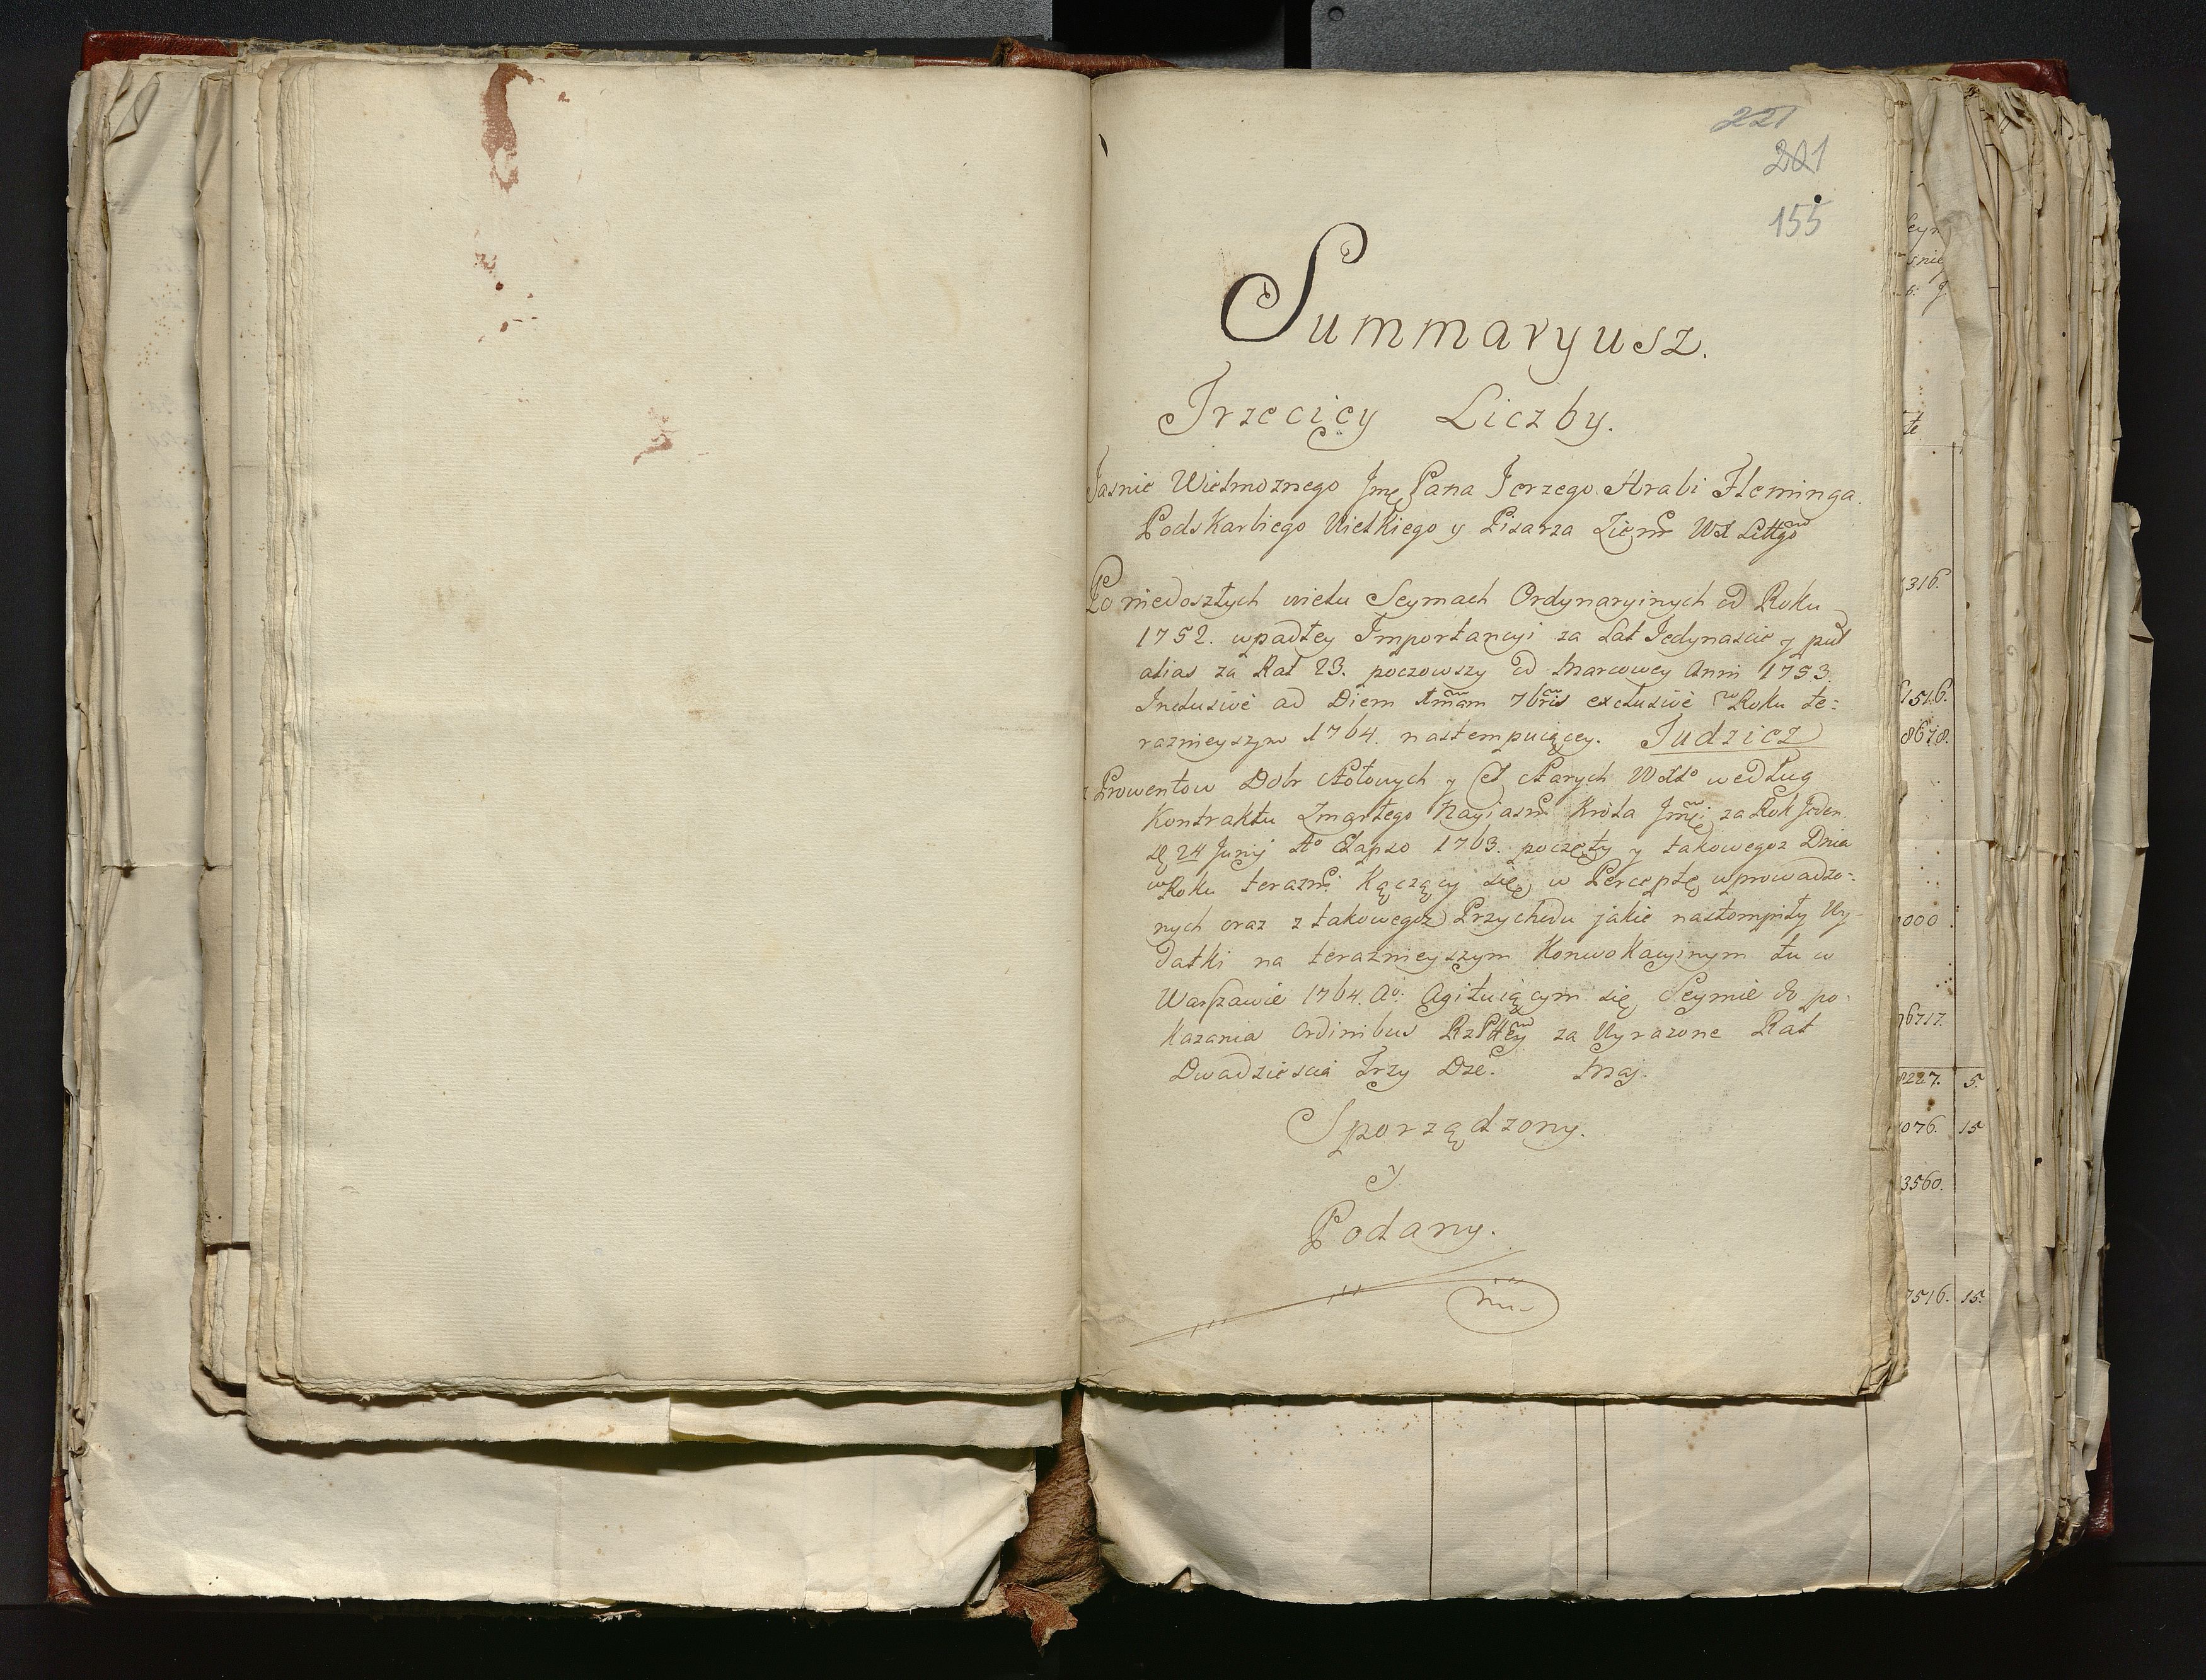 221
201
155
Summaryusz.
Trzecięy Liczby.
Jasnie Wielmoznego Jmę Pana Jerzego Hrabi Fleminga.
Podskarbiego Wielkiego y Pisarza Ziem WX Littgo
Po niedoszłych wielu Seymach Ordynaryinych od Roku
1752. wpadłey Importancyi za Lat Jedynascie y puł
alias za Rat 23. poczowszy od Marcowey Anni 1753.
Inclusivè ad Diem 1mam 7bris exclusivè w Roku te:
raznieyszym 1764. nastempuiącey. Tudziez
z Prowentow Dobr Stołowych y Starych WXL° według
Kontraktu Zmarłego Nayiasn Krola Jmći za Rok Jeden
24 Junij A° Elapso 1763. poczęty y takowegoz Dnia
w Roku terazn: Kączący się w Perceptę wprowadzo:
nych oraz z takowegoz Przychodu jakie nastompiły Wy-
datki na teraznieyszym Konwokacyinym tu w
Warszawie 1764. A°: Agituiącym się Seymie do po:
kazania Ordinibus RzPttey za Wyrazone Rat
Dwadziescia Trzy Dże. Maj.
Sporządzony.
y
Podany.
1316.
1516.
8678.
000
76717.
8227. 5.
076. 15
3560.
7516. 15.